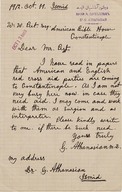 1918. Oct. 14. Ismid
W. W. Peet esq. American Bible House
Constantinople
Dear Mr. Peet,
I have read in papers
that American and English
red cross aid parties are coming
to Constantinople. As I am not
very busy here now in case they
need aid. I can come and work
with them as surgeon and as
interpreter. Please kindly write
to one of them be such need.
Yours truly
G. Athanassian M.D.
my address
Dr. G. Athanassian
Ismid